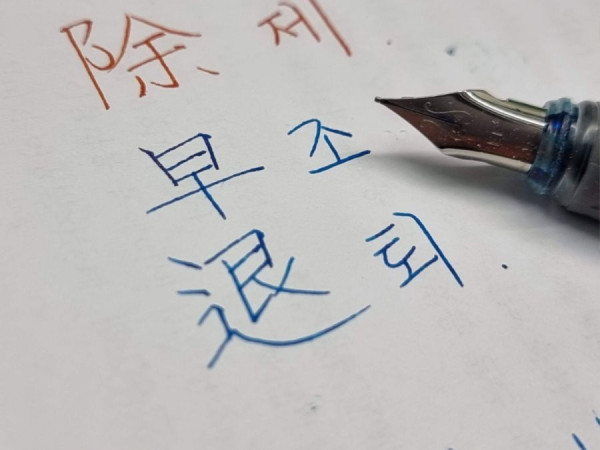 除 제
早 조
退 퇴